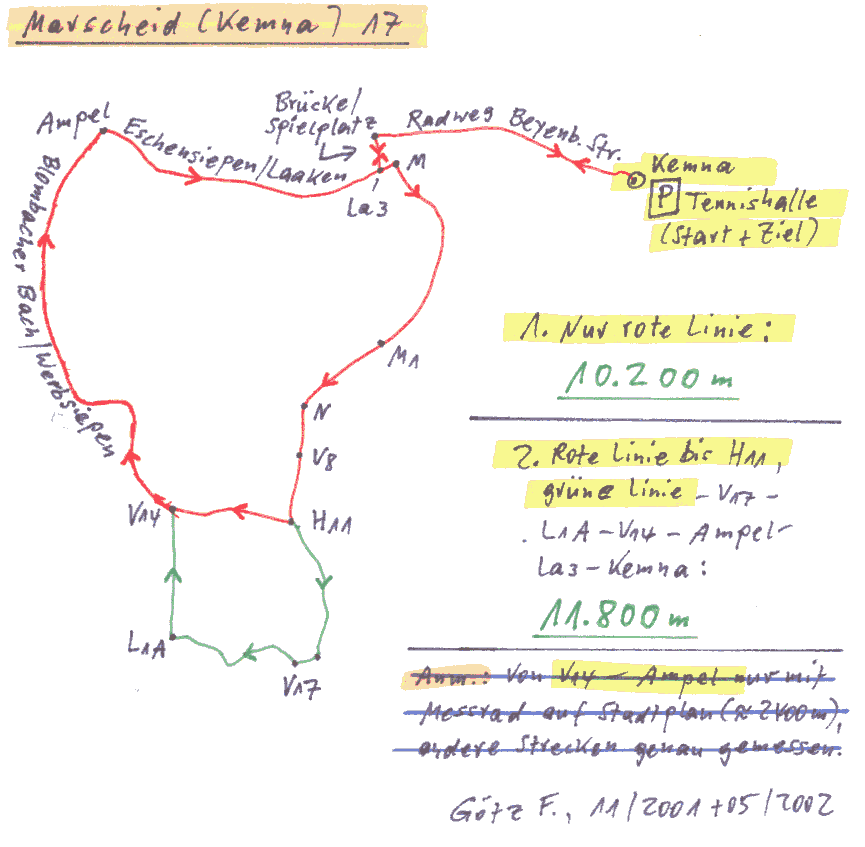 Marscheid (Kemna) 17
Ampel
Eschensiepen/Laaken
Brücke/
Spielplatz
Radweg Beyenb. Str.
M
La3
Kemna
P Tennishalle
(Start + Ziel)
Blombacher Bach/Werbsiepen
M1
N
V8
V14
H11
L1A
V17
1. Nur rote Linie:
10.200m
2. Rote Linie bis H11,
grüne Linie - V17 -
L1A - V14 - Ampel -
La3 - Kemna:
11.800m
Anm.: Von V14 - Ampel nur mit
Messrad auf Stadtplan (≈ 2400m),
andere Strecken genau gemessen.
Götz F., 11/2001 + 05/2002